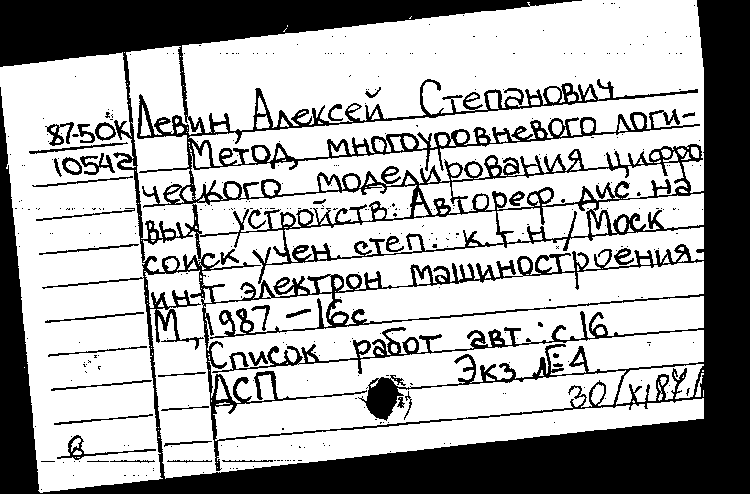 87-50к Левин, Алексей Степанович
10542 Метод многоуровневого логи-
ческого моделирования цифро
вых устройств: Автореф. дис. на
соиск. учен. степ. к.т.н. / Моск.
ин-т электрон. машиностроения-
М., 1987. - 16с
Список работ авт.: с.16.
ДСП Экз. № 4
30/XI87.